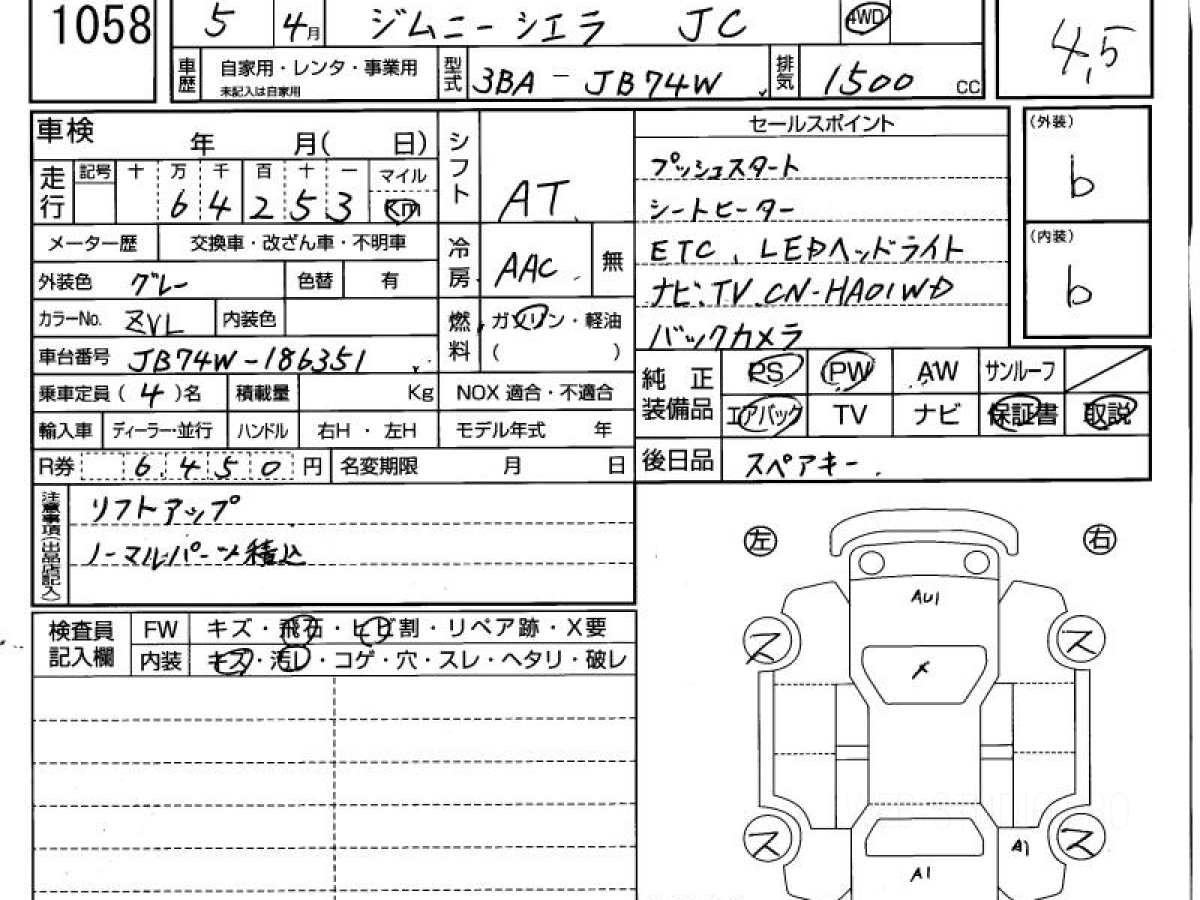 1058 5 4月 ジムニーシエラ JC 4WD 4.5
車歴 自家用・レンタ・事業用 未記入は自家用 型式 3BA - JB74W 排気 1500 CC
車検 年 月( 日) シフト AT セールスポイント (外装) b
走行 記号 十 万 千 百 十 一 マイル
6 4 2 5 3 Km
プッシュスタート
シートヒーター
ETC、LEDヘッドライト
ナビ、TV.CN-HA01WD
バックカメラ
(内装) b
メーター歴 交換車・改ざん車・不明車 冷房 AAC 無
外装色 グレー 色替 有
カラーNo. ZVL 内装色 燃料 ガソリン・軽油
( )
車台番号 JB74W-186351
純正装備品 PS PW AW サンルーフ
エアバック TV ナビ 保証書 取説
乗車定員(4)名 積載量 Kg NOX 適合・不適合
輸入車 ディーラー・並行 ハンドル 右H・左H モデル年式 年
R券 6.450 円 名変期限 月 日 後日品 スペアキー.
注意事項(出品店記入) リフトアップ
ノーマルパーツ積込
左 右
検査員記入欄 FW キズ・飛石・ヒビ割・リペア跡・X要
内装 キズ・汚レ・コゲ・穴・スレ・ヘタリ・破レ
AU1
ス ス
メ
ス A1 ス
A1